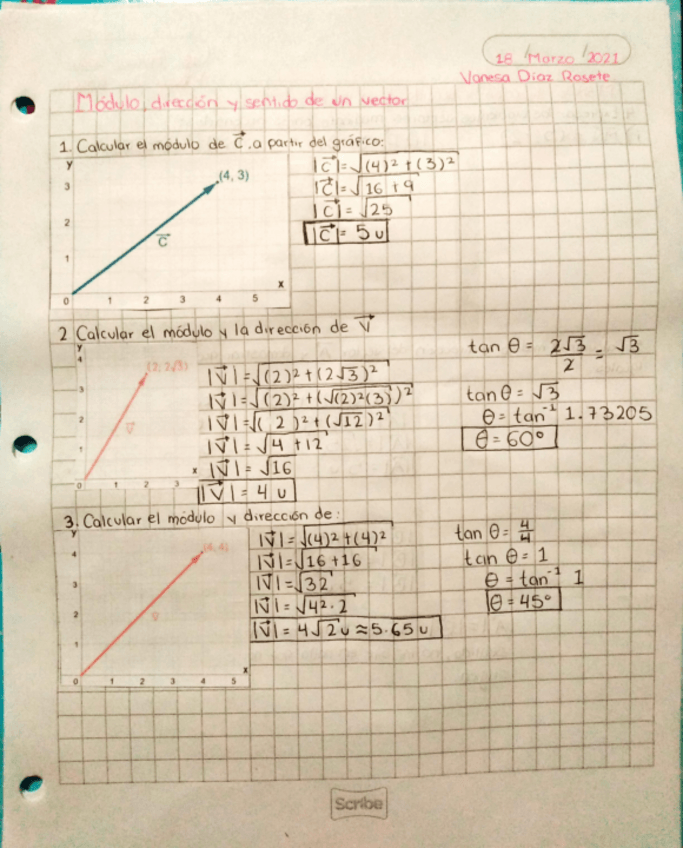 18 / Marzo / 2021
Vanesa Díaz Rosete
Módulo, dirección y sentido de un vector
1. Calcular el módulo de C⃗, a partir del gráfico:
y
3
2
1
0 1 2 3 4 5
x
(4, 3)
C⃗
|C⃗|=√(4)²+(3)²
|C⃗|=√16+9
|C⃗|=√25
|C⃗|= 5 u
2 Calcular el módulo y la dirección de V⃗
y
4
3
2
1
0 1 2 3
x
(2, 2√3)
v⃗
|V⃗|=√(2)²+(2√3)²
|V⃗|=√(2)²+(√(2)²(3))²
|V⃗|=√( 2 )²+(√12)²
|V⃗|=√4+12
|V⃗|=√16
|V⃗|= 4 u
tan θ = 2√3/2 = √3
tan θ = √3
θ = tan⁻¹ 1.73205
θ = 60°
3. Calcular el módulo y dirección de:
y
4
3
2
1
0 1 2 3 4 5
x
(4, 4)
v⃗
|V⃗|=√(4)²+(4)²
|V⃗|=√16+16
|V⃗|=√32
|V⃗|=√4²·2
|V⃗|= 4√2 u ≈ 5.65 u
tan θ = 4/4
tan θ = 1
θ = tan⁻¹ 1
θ = 45°
Scribe